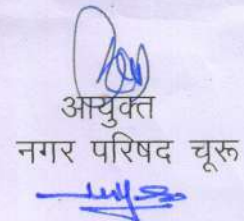 आयुक्त
नगर परिषद चूरू